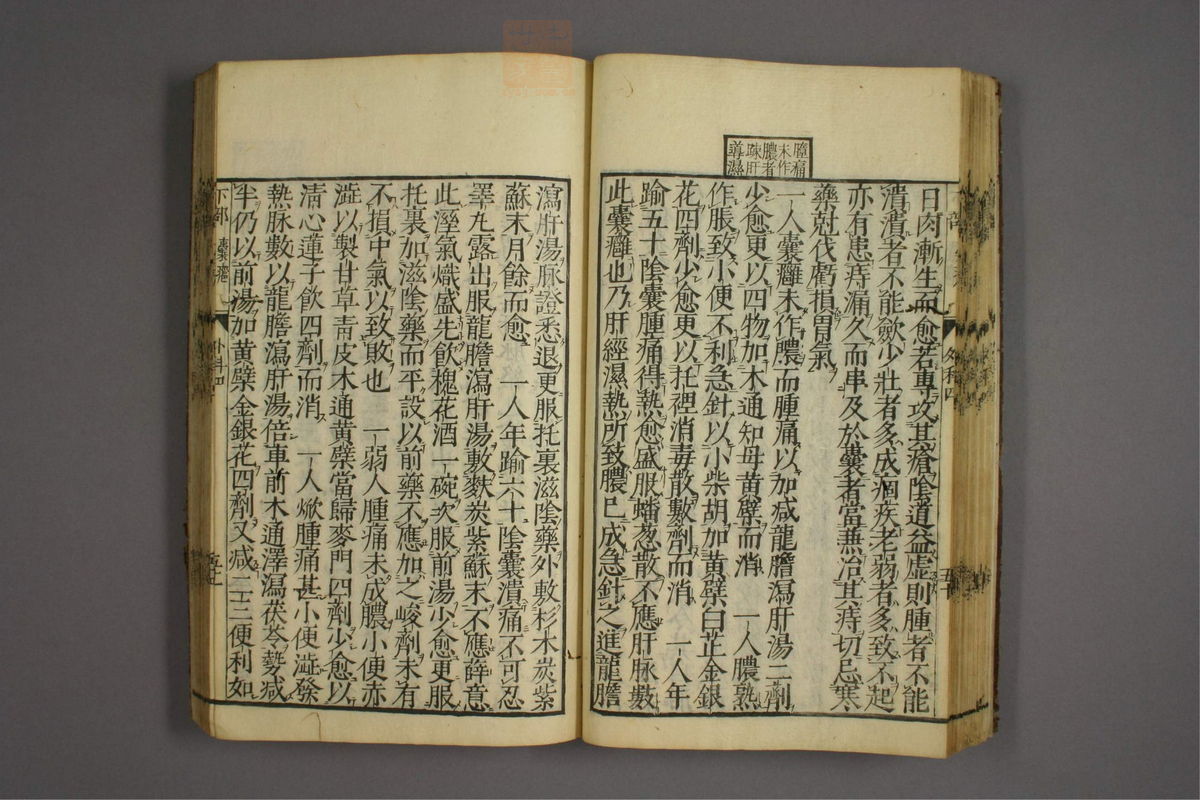 腫痛
未作
膿者
疎肝
導濕
日肉漸生而愈若專攻其瘡陰道益虛則腫者不能
潰潰者不能歛少壯者多成痼疾老弱者多致不起
亦有患痔漏久而串及於囊者當兼治其痔切忌寒
藥尅伐虧損胃氣
一人囊癰未作膿而腫痛以加减龍膽瀉肝湯二劑
少愈更以四物加木通知母黃檗而消 一人膿熟
作脹致小便不利急針以小柴胡加黃檗白芷金銀
花四劑少愈更以托裡消毒散數劑而消 一人年
踰五十陰囊腫痛得熱愈盛服蟠葱散不應肝脉數
此囊癰也乃肝經濕熱所致膿已成急針之進龍膽
瀉肝湯脉證悉退更服托裏滋陰藥外敷杉木炭紫
蘇末月餘而愈 一人年踰六十陰囊潰痛不可忍
睪丸露出服龍膽瀉肝湯敷麩炭紫蘇末不應薛意
此溼氣熾盛先飲槐花酒一碗次服前湯少愈更服
托裏加滋陰藥而平設以前藥不應加之峻劑未有
不損中氣以致敗也 一弱人腫痛未成膿小便赤
澁以製甘草青皮木通黃檗當歸麥門四劑少愈以
清心蓮子飲四劑而消 一人焮腫痛甚小便澁發
熱脉數以龍膽瀉肝湯倍車前木通澤瀉茯苓勢减
半仍以前湯加黃檗金銀花四劑又减二三便利如
下部 囊癰 外科四